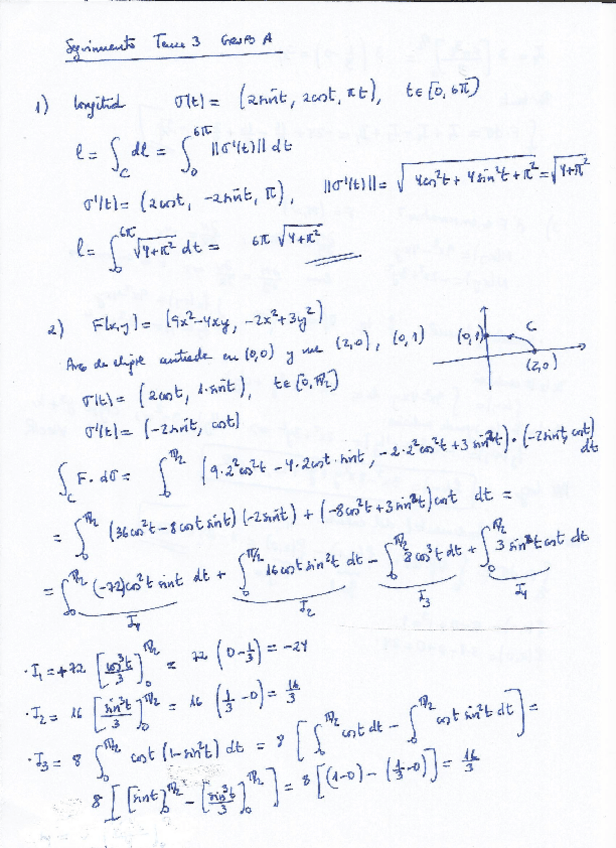 Seguimiento Tema 3 Grupo A
1) longitud σ(t) = (2sint, 2cost, πt), t∈[0, 6π]
l = ∫_C dl = ∫_0^{6π} ||σ'(t)|| dt
σ'(t) = (2cost, -2sint, π), ||σ'(t)|| = √(4cos²t + 4sin²t + π²) = √(4+π²)
l = ∫_0^{6π} √(4+π²) dt = 6π √(4+π²)
2) F(x,y) = (9x²-4xy, -2x²+3y²)
Arco de elipse centrada en (0,0) y une (2,0), (0,1)
(0,1) C
(2,0)
σ(t) = (2cost, 1·sint), t∈[0, π/2]
σ'(t) = (-2sint, cost)
∫_C F·dσ = ∫_0^{π/2} (9·2²cos²t - 4·2cost·sint, -2·2²cos²t + 3sin²t)·(-2sint, cost) dt
= ∫_0^{π/2} (36cos²t - 8cost sint)(-2sint) + (-8cos²t + 3sin²t)cost dt =
= ∫_0^{π/2} (-72)cos²t sint dt + ∫_0^{π/2} 16cost sin²t dt - ∫_0^{π/2} 8cos³t dt + ∫_0^{π/2} 3sin²t cost dt
I₁ I₂ I₃ I₄
· I₁ = +72 [cos³t/3]_0^{π/2} = 72 (0 - 1/3) = -24
· I₂ = 16 [sin³t/3]_0^{π/2} = 16 (1/3 - 0) = 16/3
· I₃ = 8 ∫_0^{π/2} cost (1-sin²t) dt = 8 [∫_0^{π/2} cost dt - ∫_0^{π/2} cost sin²t dt] =
8 [[sint]_0^{π/2} - [sin³t/3]_0^{π/2}] = 8 [(1-0) - (1/3-0)] = 16/3